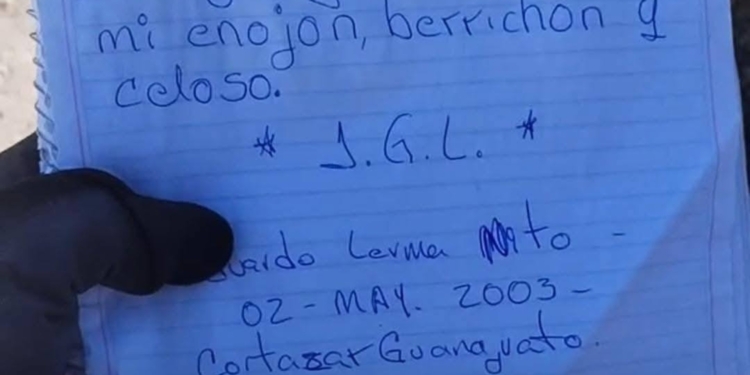 mi enojon, berrichon y
celoso.
* J.G.L. *
uardo Lerma Nito -
02 - MAY. 2003 -
Cortazar Guanajuato.